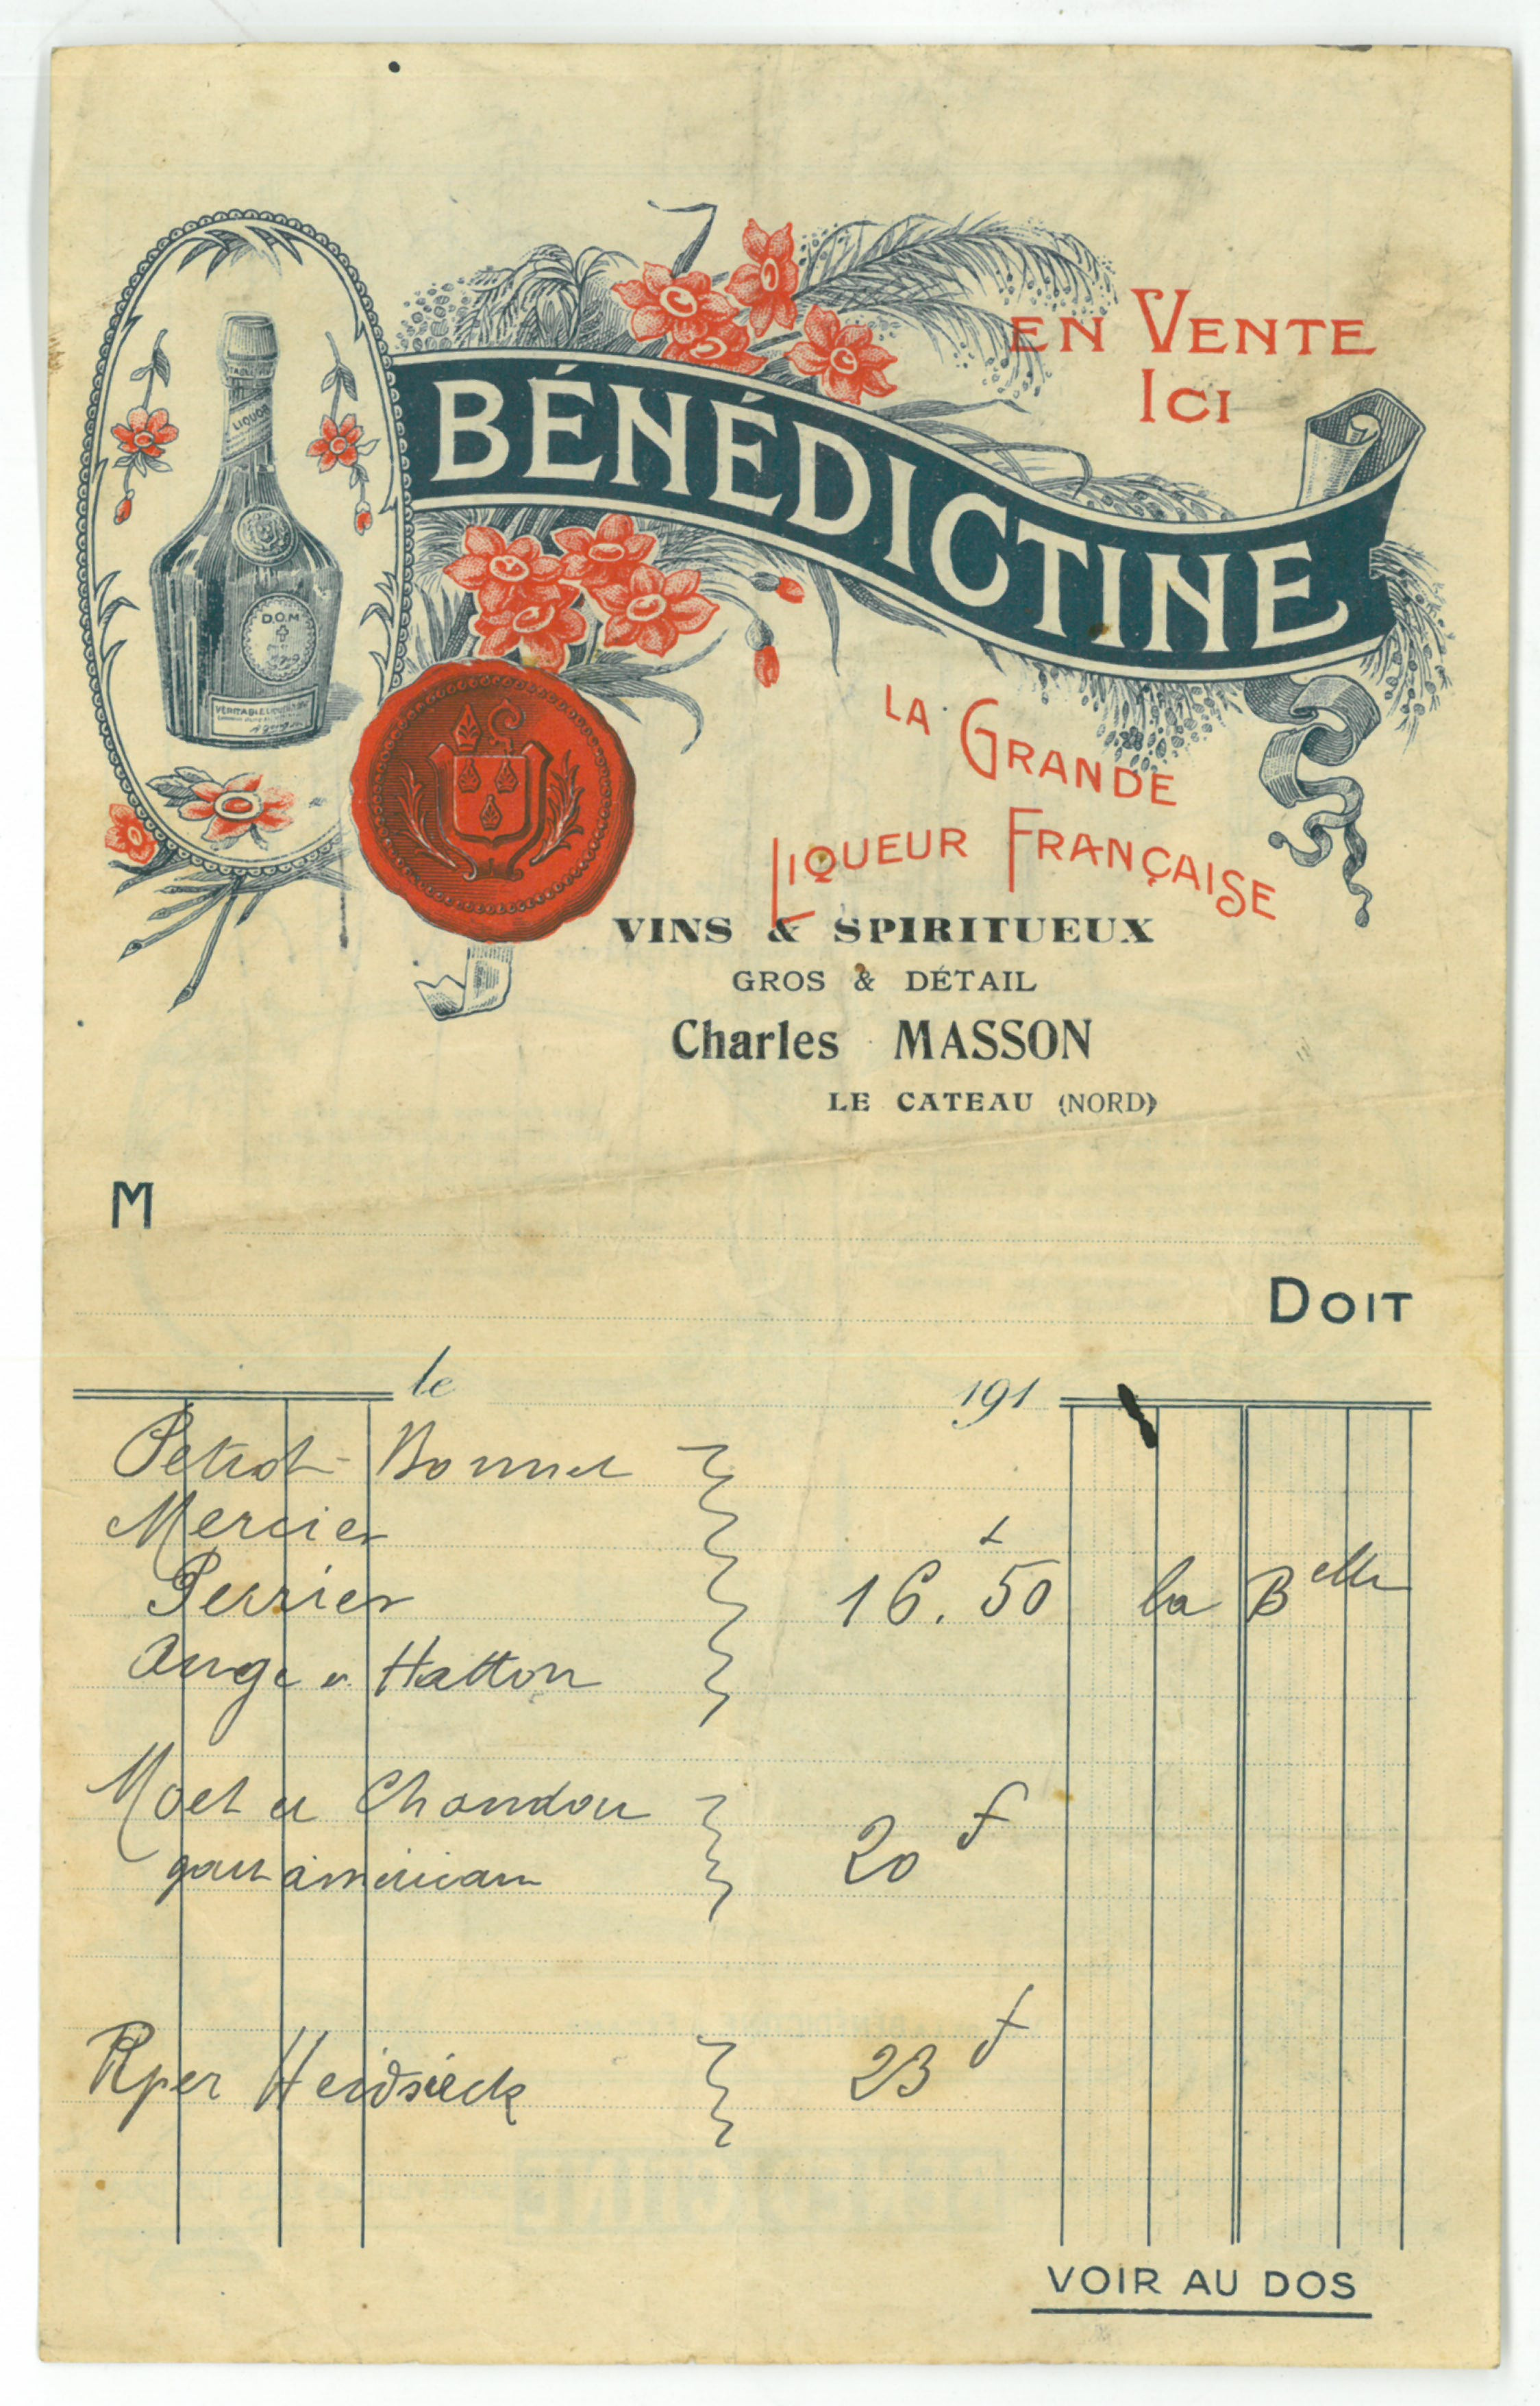 EN VENTE
ICI
BÉNÉDICTINE
LIQUOR
D.O.M
VÉRITABLE
LA GRANDE
LIQUEUR FRANÇAISE
VINS & SPIRITUEUX
GROS & DÉTAIL
Charles MASSON
LE CATEAU (NORD)
M
DOIT
le 191
Petrot-Bonnet
Mercier
Perrier
16.50 la Belle
Hatton
Moet et Chandon
gout américain
20 f
Piper Heidsieck
23 f
VOIR AU DOS